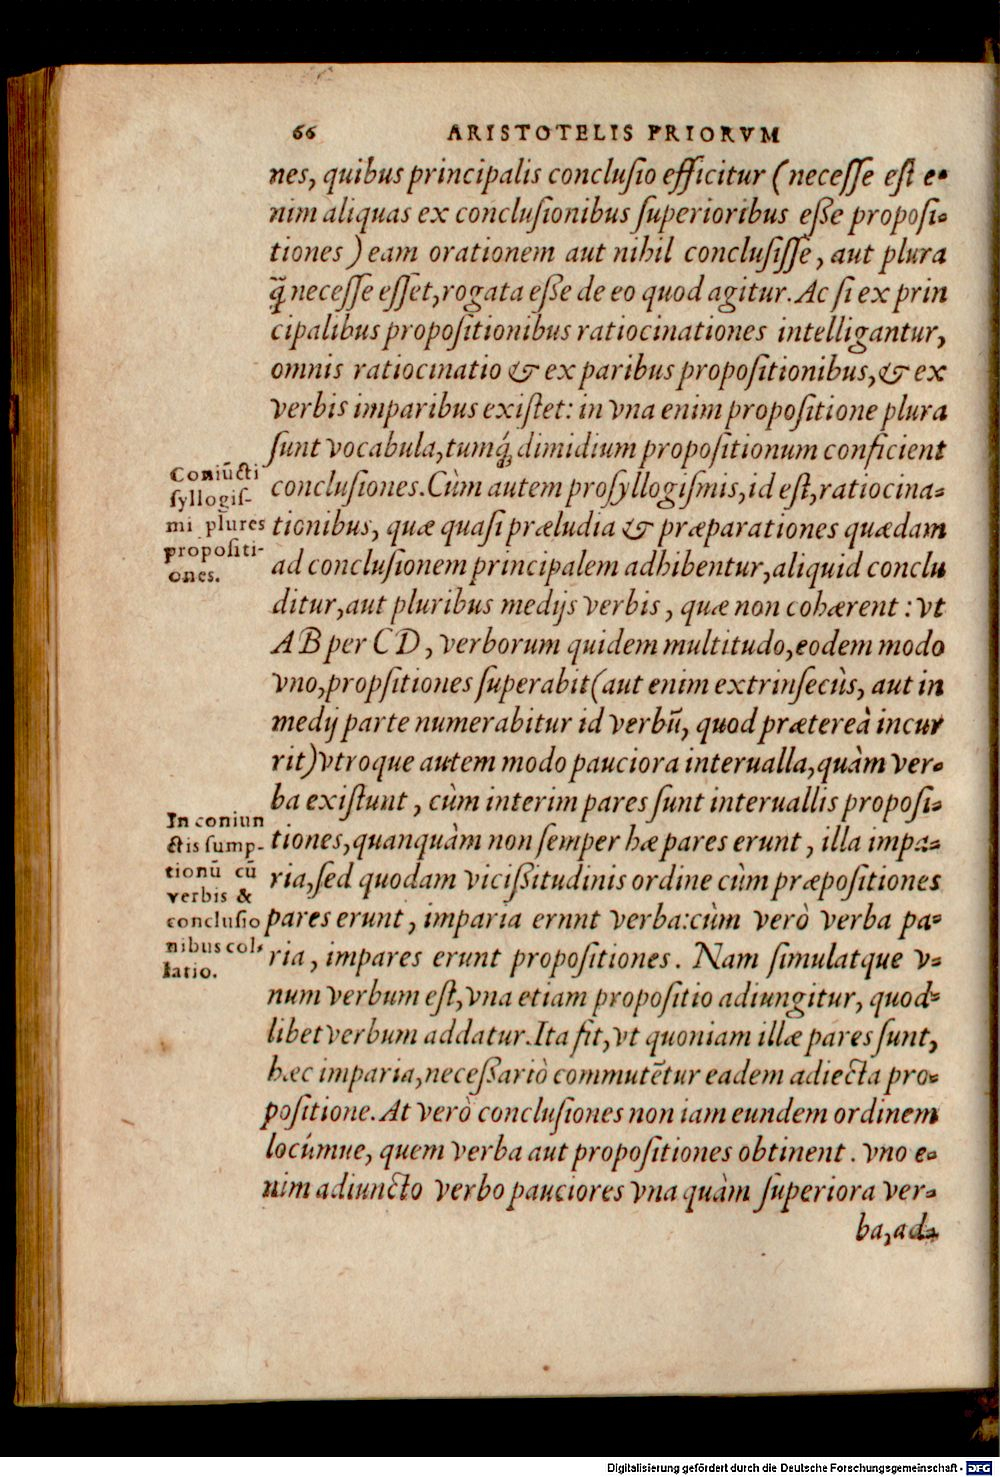 66 ARISTOTELIS PRIORVM
nes, quibus principalis conclusio efficitur (necesse est e-
nim aliquas ex conclusionibus superioribus eße proposi-
tiones) eam orationem aut nihil conclusisse, aut plura
q̃ necesse esset, rogata eße de eo quod agitur. Ac si ex prin
cipalibus propositionibus ratiocinationes intelligantur,
omnis ratiocinatio & ex paribus propositionibus, & ex
verbis imparibus existet: in vna enim propositione plura
sunt vocabula, tumq́; dimidium propositionum conficient
conclusiones. Cùm autem prosyllogismis, id est, ratiocina-
tionibus, quæ quasi præludia & præparationes quædam
ad conclusionem principalem adhibentur, aliquid conclu
ditur, aut pluribus medijs verbis, quæ non cohærent: vt
AB per CD, verborum quidem multitudo, eodem modo
vno, propsitiones superabit (aut enim extrinsecùs, aut in
medij parte numerabitur id verbũ, quod prætereà incur
rit) vtroque autem modo pauciora interualla, quàm ver-
ba existunt, cùm interim pares sunt interuallis proposi-
tiones, quanquàm non semper hæ pares erunt, illa impa-
ria, sed quodam vicißitudinis ordine cùm præpositiones
pares erunt, imparia ernnt verba: cùm verò verba pa-
ria, impares erunt propositiones. Nam simulatque v-
num verbum est, vna etiam propositio adiungitur, quod-
libet verbum addatur. Ita fit, vt quoniam illæ pares sunt,
hæc imparia, necessariò commutẽtur eadem adiecta pro-
positione. At verò conclusiones non iam eundem ordinem
locúmue, quem verba aut propositiones obtinent. vno e-
nim adiuncto verbo pauciores vna quàm superiora ver-
ba, ad-
Coniũcti
syllogis-
mi plures
propositi-
ones.
In coniun
ctis sump-
tionũ cũ
verbis &
conclusio
nibus col-
latio.
Digitalisierung gefördert durch die Deutsche Forschungsgemeinschaft - DFG